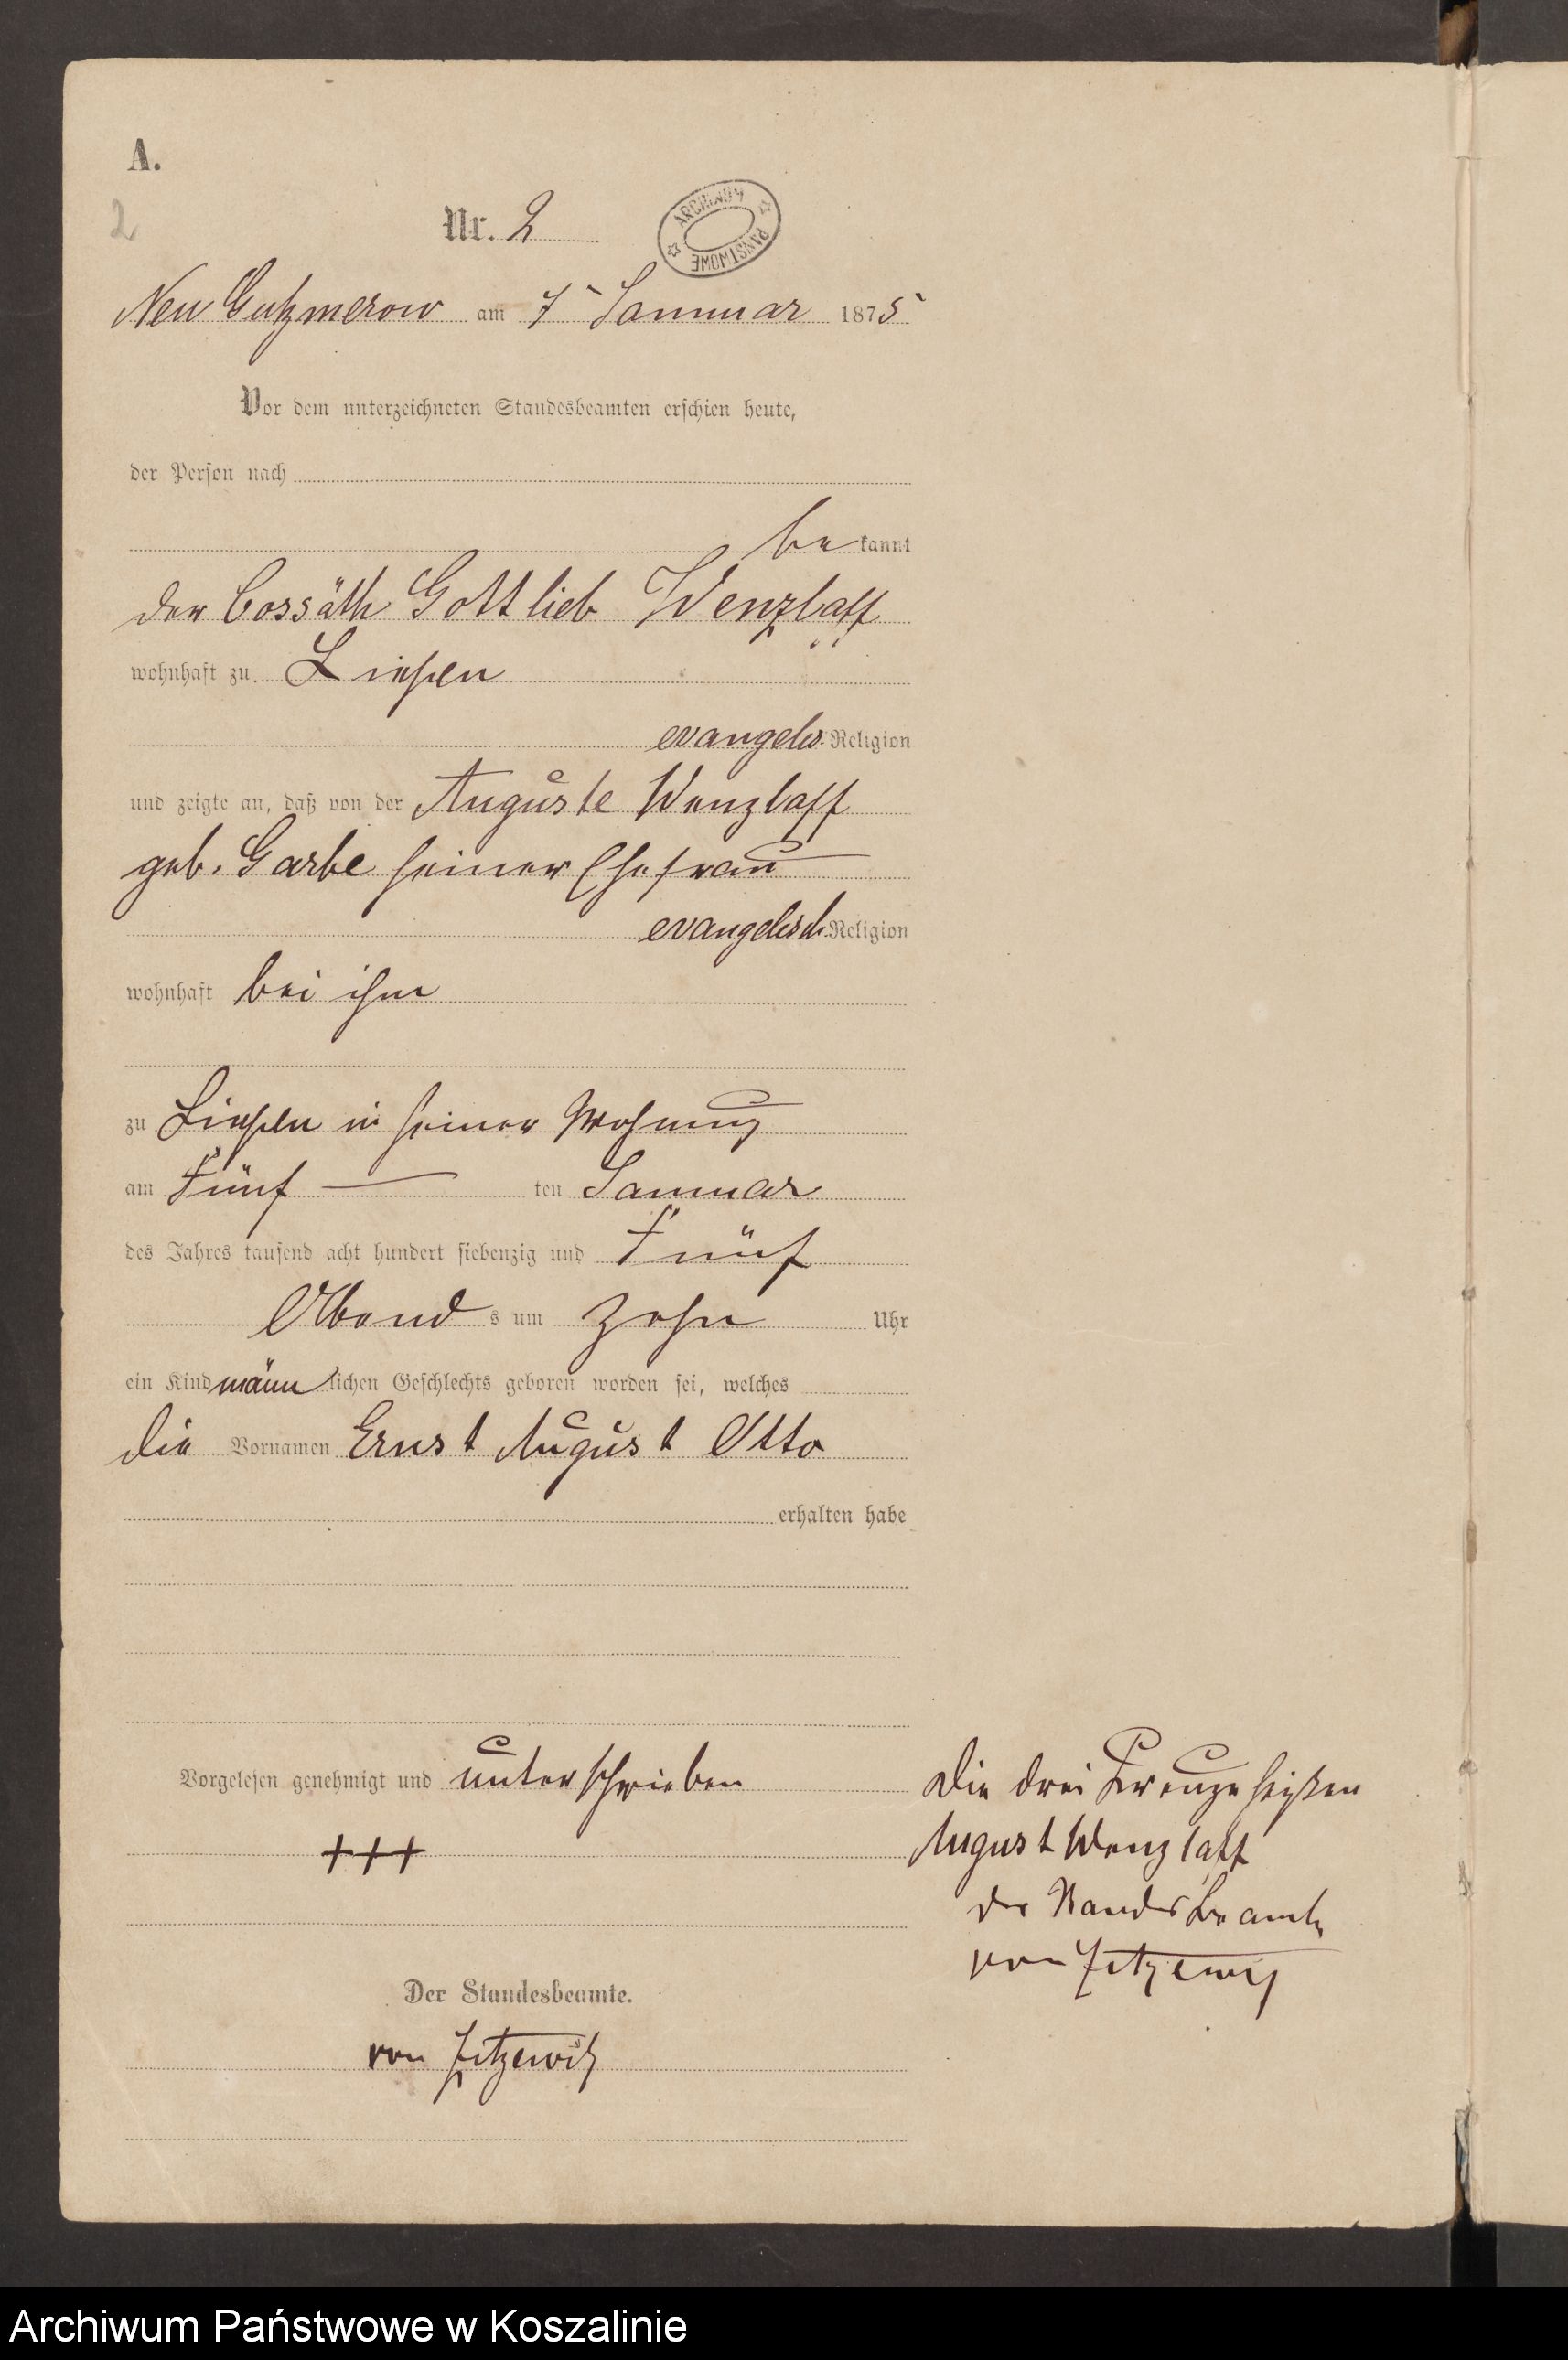 A.
2
Nr. 2
ARCHIWUM PAŃSTWOWE
Neu Gutzmerow am 7 Januar 1875
Vor dem unterzeichneten Standesbeamten erschien heute,
der Person nach
be kannt
der Cossäth Gottlieb Wenzlaff
wohnhaft zu
evangelis. Religion
und zeigte an, daß von der Auguste Wenzlaff
geb. Garbe seiner Ehefrau
evangelisch Religion
wohnhaft bei ihm
zu in seiner Wohnung
am Fünf ten Januar
des Jahres tausend acht hundert siebenzig und Fünf
Abend s um Zehn Uhr
ein Kind männ lichen Geschlechts geboren worden sei, welches
die Vornamen Ernst August Otto
erhalten habe
Vorgelesen genehmigt und unterschrieben
+++
Die drei Kreuze heißen
August Wenzlaff
der Standesbeamte
von Zitzewitz
Der Standesbeamte.
von Zitzewitz
Archiwum Państwowe w Koszalinie